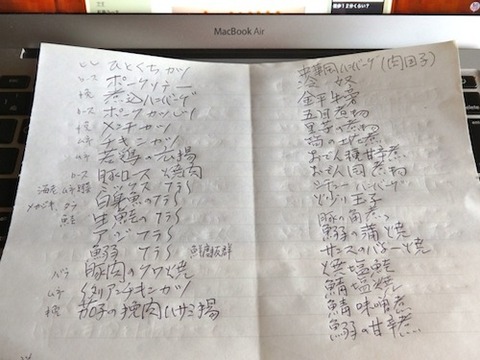 MacBook Air
ヒレ ひとくちカツ
ロース ポークソテー
挽 煮込ハンバーグ
ロース ポークカツレツ
挽 メンチカツ
ムネ チキンカツ
ムネ 若鶏の唐揚
ロース 豚ロース 焼肉
海老 ミックス フライ
メカジキ、タラ 白身魚のフライ
鮭 生鮭の フライ
アジ フライ
鰯 フライ 鮮度抜群
バラ 豚肉の クワ焼
ムネ イタリアンチキンカツ
挽 茄子の挽肉ハサミ揚
中華風ハンバーグ(肉団子)
冷 奴
金平牛蒡
五目煮
里芋の煮物
おでん種甘辛煮
おでん同煮物
ジューシーハンバーグ
だし巻き玉子
豚の角煮
鰯の蒲焼
サーモンのバター焼
焼塩鮭
鯖塩焼
鯖味噌煮
鰯の甘辛煮